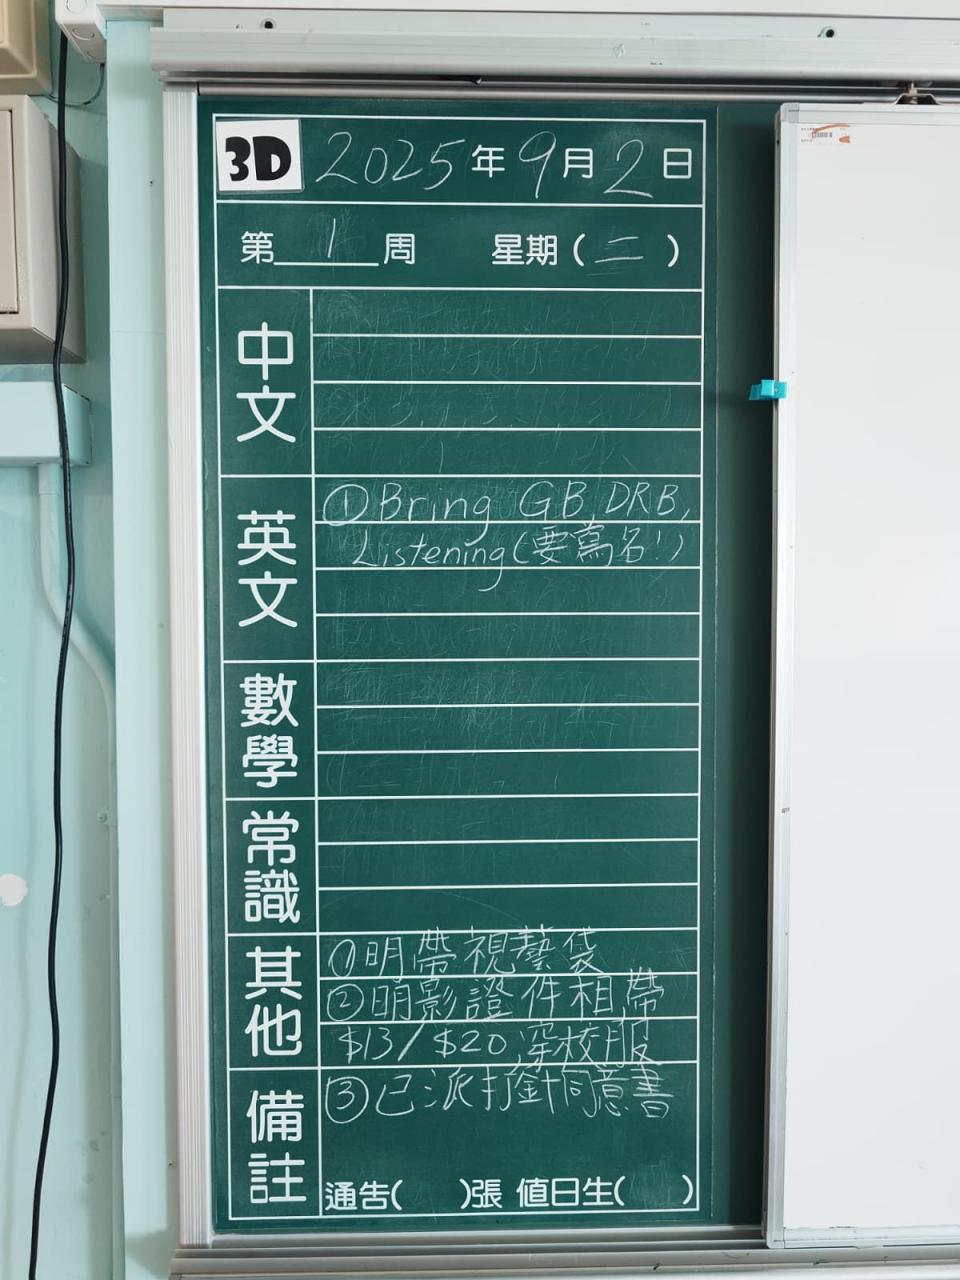 3D 2025年9月2日
第1周 星期(二)
中文
英文
①Bring GB, DRB,
Listening(要寫名!)
數學
常識
其他
①明帶視藝袋
②明影證件相,帶
$13/$20,穿校服
備註
③已派打針同意書
通告( )張 值日生( )